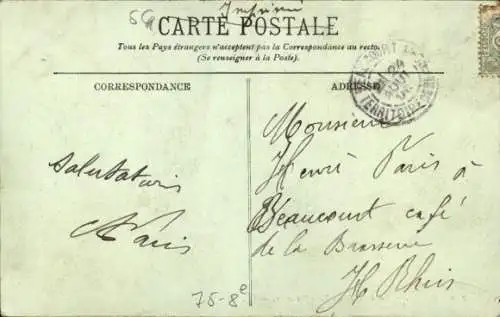 Imprimé
CARTE POSTALE
Tous les Pays étrangers n'acceptent pas la Correspondance au recto.
(Se renseigner à la Poste).
CORRESPONDANCE
ADRESSE
Monsieur
Henri Paris
à
Beaucourt café
de la Brasserie
Ht Rhin
Salutations
Paris
75-8e
BEAUCOURT
24
TERRITOIRE